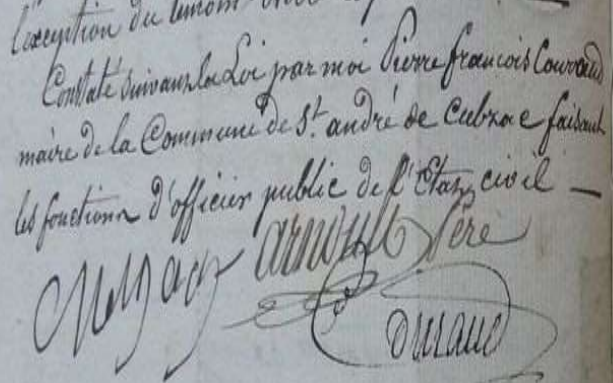 l'exception du temoin
Constaté suivant la Loi par moi Pierre françois Couraud
maire de la Commune de St. andré de Cubzac faisant
les fonctions d'officier public de l'Etat civil —
arnoult Père
Duraud